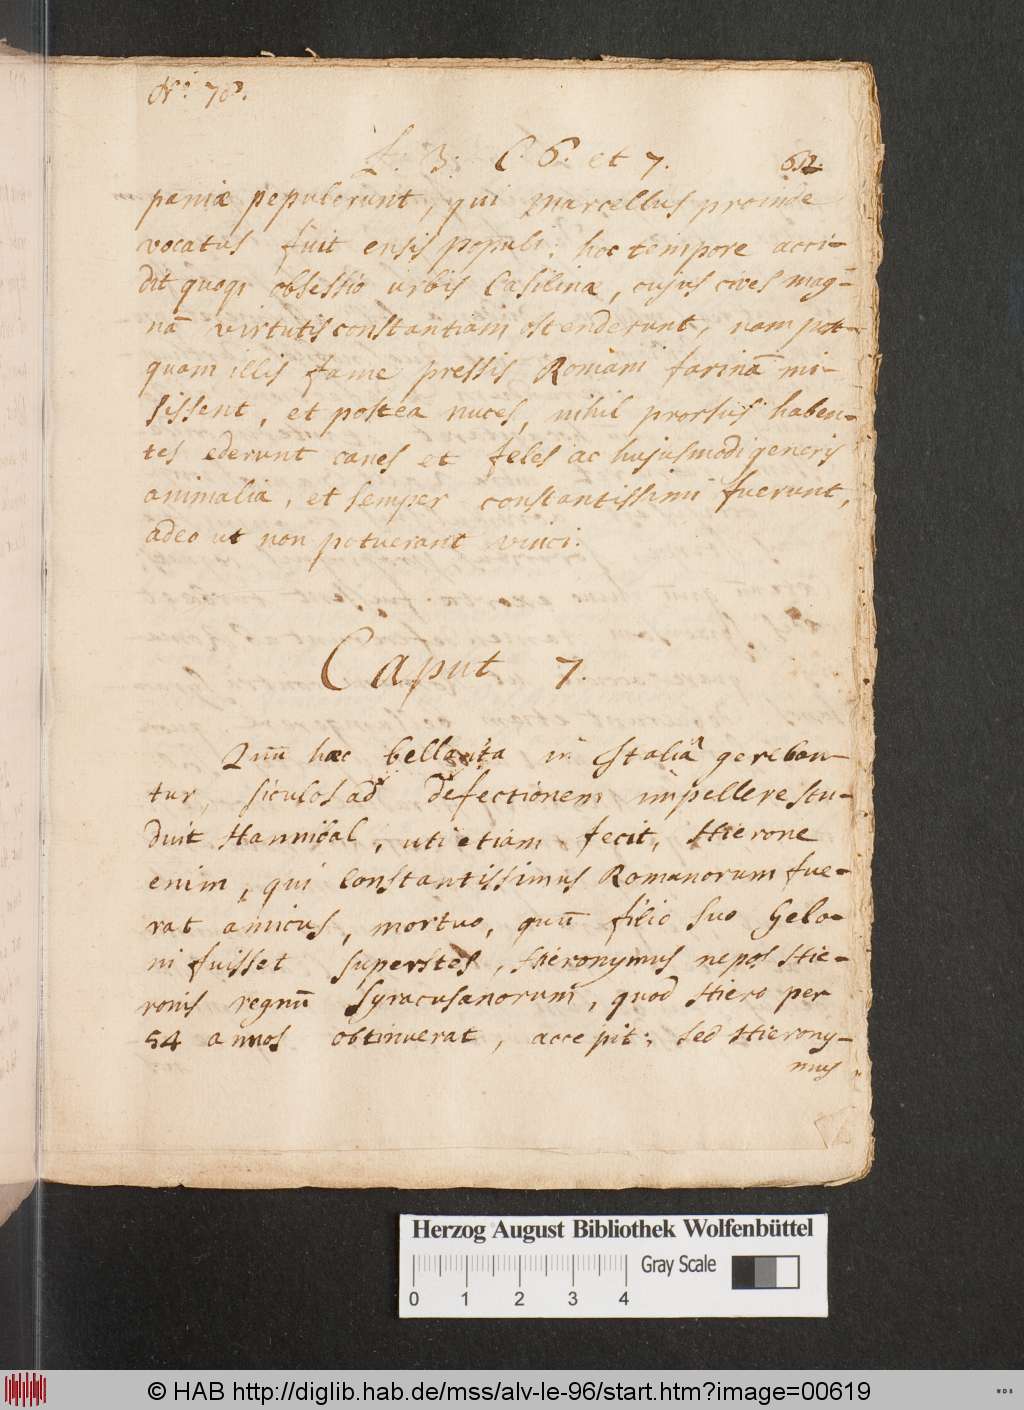 No. 78.
L. 3. C. 6. et 7. 62.
paniæ pepulerunt, qui Marcellus proinde
vocatus fuit ensis populi; hoc tempore acci-
dit quoq; obsessio urbis Casilinæ, cujus cives mag-
nā virtutis constantiam ostenderunt, nam pot-
quam illis fame pressis Romani farinā mi-
sissent, et postea nuces, nihil prorsus haben-
tes ederunt canes et feles ac hujusmodi generis
animalia, et semper constantissimi fuerunt,
adeo ut non potuerant vinci.
Caput 7.
Quū hæc bella ita in Italiâ gereban-
tur, siculos ad defectionem impellere stu-
duit Hannibal, uti etiam fecit, Hierone
enim, qui constantissimus Romanorum fue-
rat amicus, mortuo, quū filio suo Gelo-
ni fuisset superstes, Hieronymus nepos Hie-
ronis regnū Syracusanorum, quod Hiero per
54 annos obtinuerat, accepit; sed Hierony-
mus
Herzog August Bibliothek Wolfenbüttel
Gray Scale
0 1 2 3 4
© HAB http://diglib.hab.de/mss/alv-le-96/start.htm?image=00619